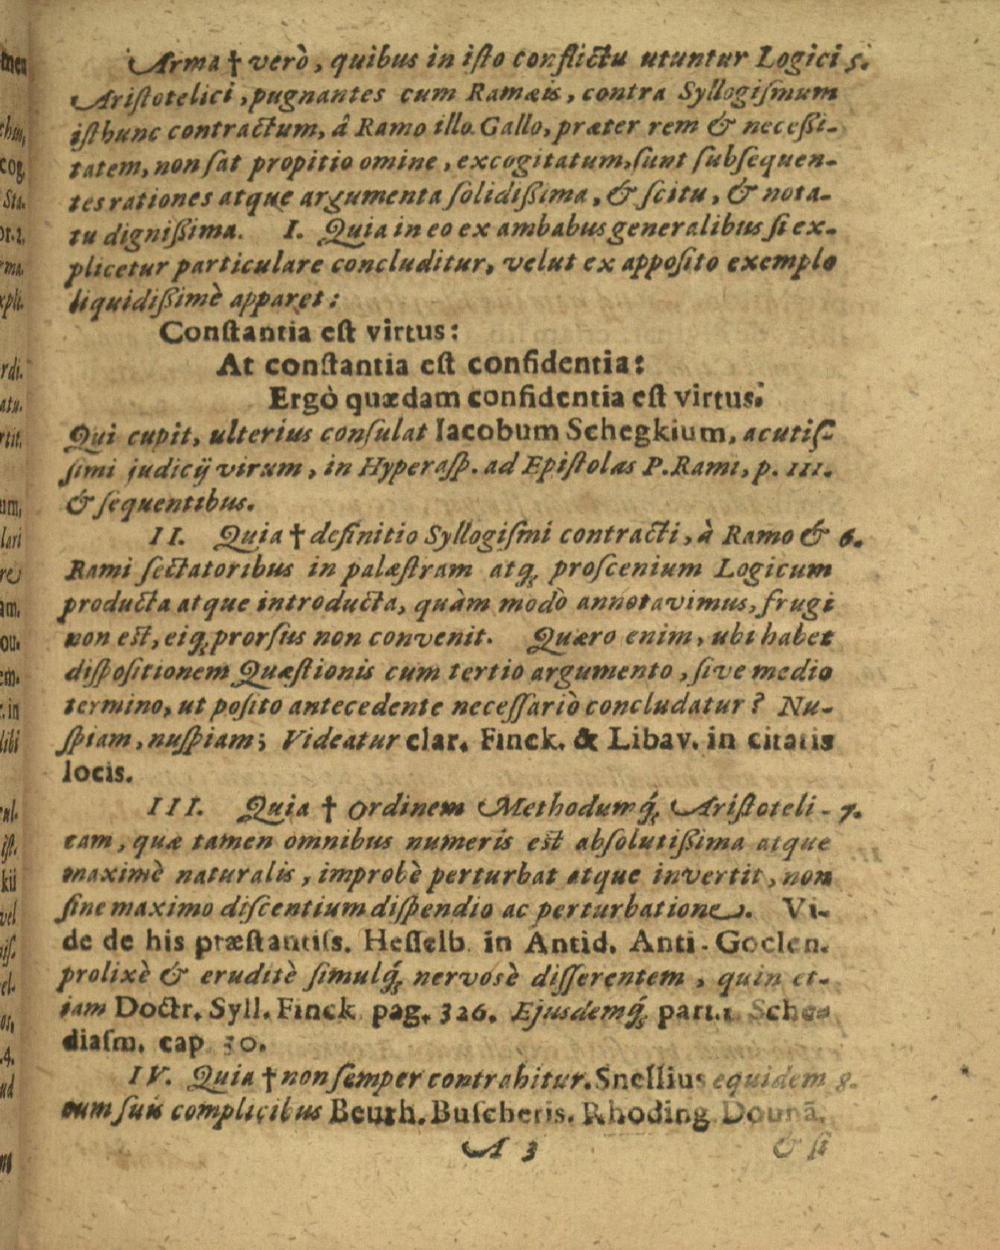 Arma † verò, quibus in iſto conflictu utuntur Logici 5.
Ariſtotelici, pugnantes cum Ramæis, contra Syllogiſmum
iſthunc contractum, â Ramo illo Gallo, præter rem & neceßi-
tatem, non ſat propitio omine, excogitatum, ſunt ſubſequen-
tes rationes atque argumenta ſolidißima, & ſcitu, & nota-
tu dignißima. I. Quia in eo ex ambabus generalibus ſi ex-
plicetur particulare concluditur, velut ex appoſito exemplo
liquidißimè apparet:
Conſtantia eſt virtus:
At conſtantia eſt confidentia:
Ergò quædam confidentia eſt virtus.
Qui cupit, ulterius conſulat Iacobum Schegkium, acutiſ-
ſimi judicij virum, in Hyperaſp. ad Epiſtolas P. Rami, p. 111.
& ſequentibus.
II. Quia † definitio Syllogiſmi contracti, à Ramo & 6.
Rami ſectatoribus in palæſtram atq; proſcenium Logicum
producta atque introducta, quàm modò annotavimus, frugi
non eſt, eiq; prorſus non convenit. Quæro enim, ubi habet
diſpoſitionem Quæſtionis cum tertio argumento, ſive medio
termino, ut poſito antecedente neceſſariò concludatur? Nu-
ſpiam, nuſpiam; Videatur clar. Finck. & Libav. in citatis
locis.
III. Quia † ordinem Methodumq́; Ariſtoteli- 7.
cam, quæ tamen omnibus numeris eſt abſolutißima atque
maximè naturalis, improbè perturbat atque invertit, non
ſine maximo diſcentium diſpendio ac perturbatione. Vi-
de de his præſtantiſs. Heſſelb. in Antid. Anti-Goclen.
prolixè & eruditè ſimulq́; nervosè differentem, quin et-
iam Doctr. Syll. Finck. pag. 326. Ejusdemq́; part. 1. Sche-
diaſm. cap. 30.
IV. Quia † non ſemper contrahitur. Snellius equidem 8.
cum ſuis complicibus Beurh. Buſcheris. Rhoding
A 3
& ſi